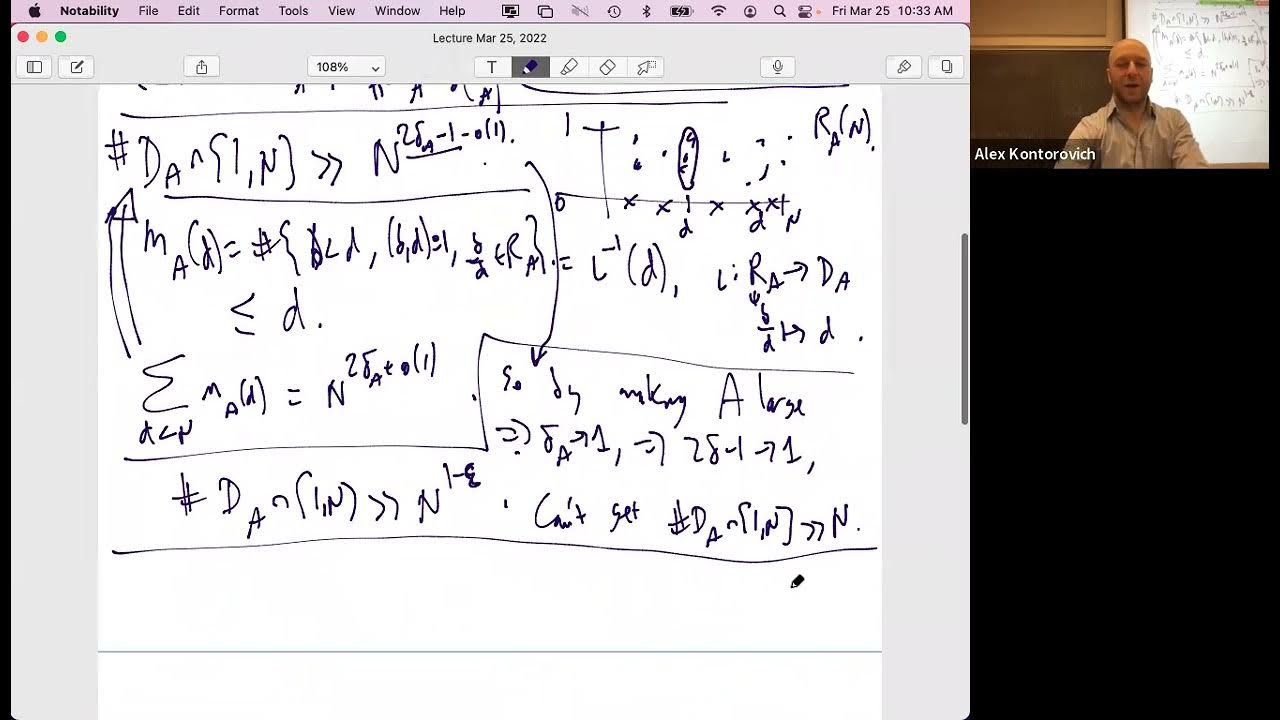 Notability File Edit Format Tools View Window Help Fri Mar 25 10:33 AM
Lecture Mar 25, 2022
108%
T
# D_A ∩ [1,N] ≫ N^{2δ_A - 1 - o(1)}.
1
0
× × | × × × +
d d N
R_A(N).
m_A(d) = #{b<d, (b,d)=1, b/d ∈ R_A}. = ι^{-1}(d), ι: R_A → D_A
≤ d.
b/d ↦ d.
Σ_{d<N} m_A(d) = N^{2δ_A + o(1)}.
So by making A large
⇒ δ_A → 1, ⇒ 2δ-1 → 1,
# D_A ∩ [1,N] ≫ N^{1-ε}.
Can't get #D_A ∩ [1,N] ≫ N.
Alex Kontorovich